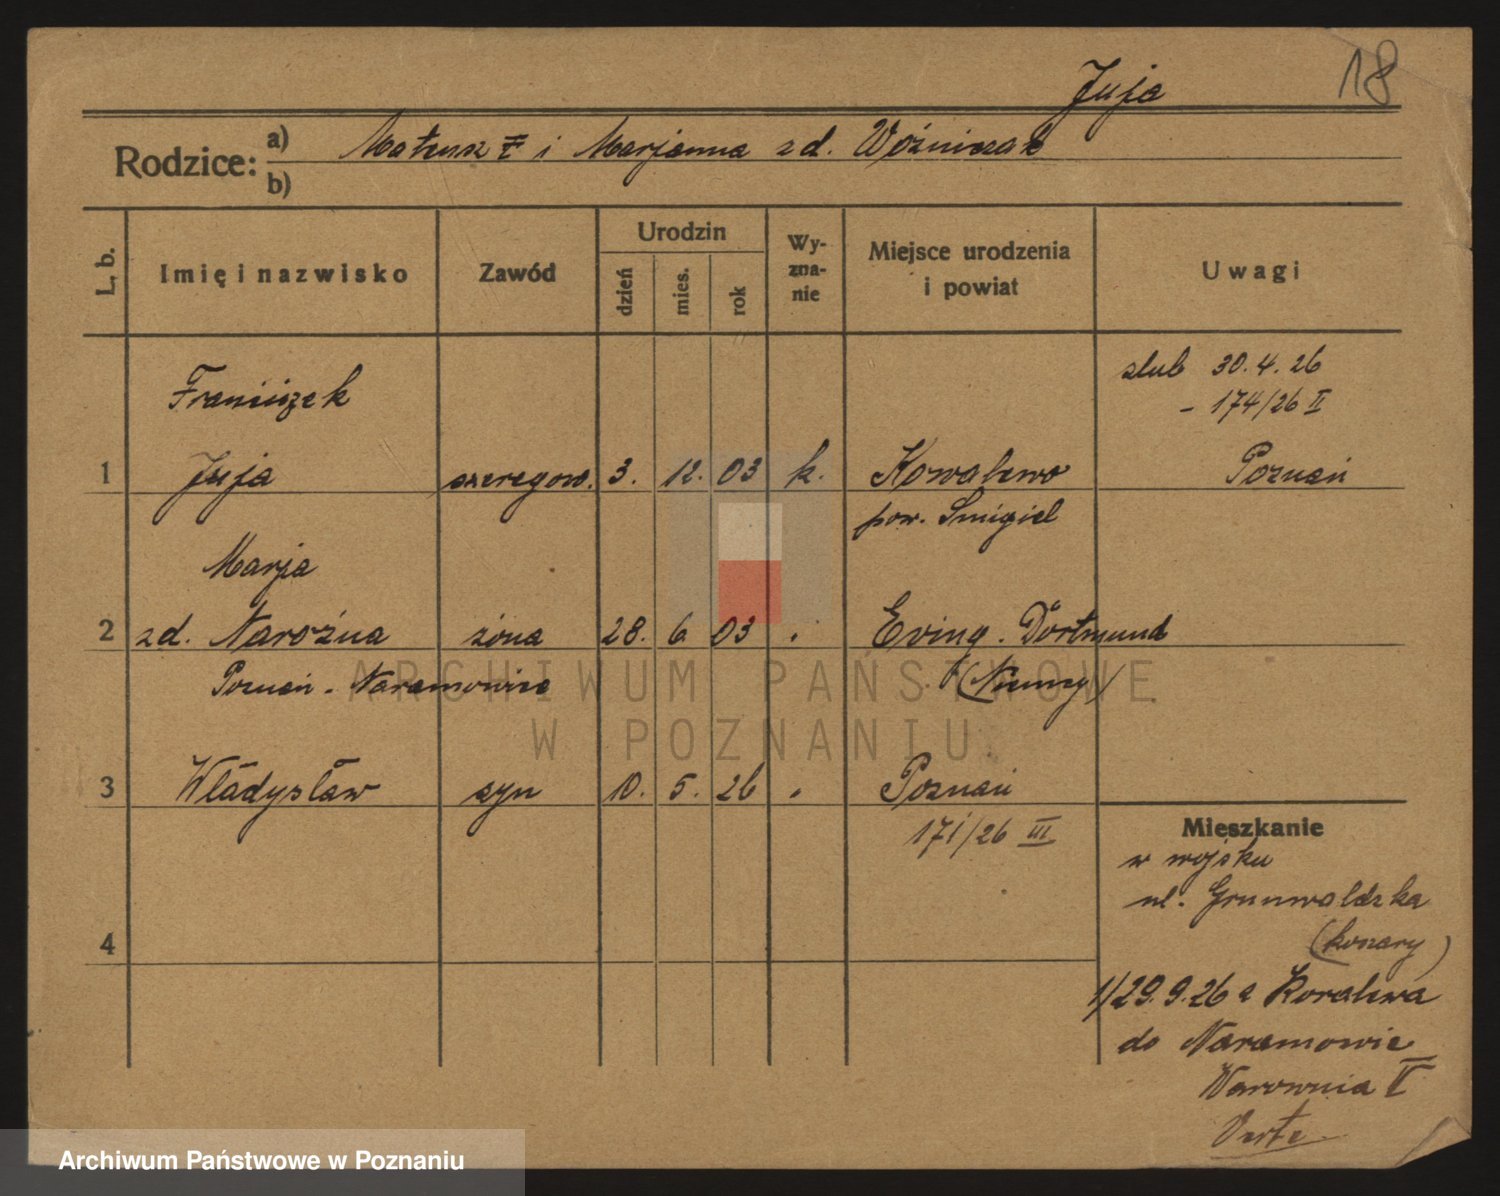 18
Juja
Rodzice: a) Mateusz i Marjanna zd. Woźniczak
b)
L. b. Imię i nazwisko Zawód Urodzin dzień mies. rok Wy-zna-nie Miejsce urodzenia i powiat Uwagi
Franciszek
ślub 30.4.26
- 174/26 II
1 Juja szeregow. 3. 12. 03 k. Kowalewo Poznań
pow. Śmigiel
Marja
2 zd. Narożna żona 28. 6 03 . Eving. Dortmund
Poznań - Naramowice (Niemcy)
3 Władysław syn 10. 5. 26 . Poznań
171/26 III
4
Mieszkanie
w wojsku
ul. Grunwaldzka
(koszary)
1/29.9.26 z Kowalewa
do Naramowic
Warownia V
ARCHIWUM PAŃSTWOWE
W POZNANIU
Archiwum Państwowe w Poznaniu